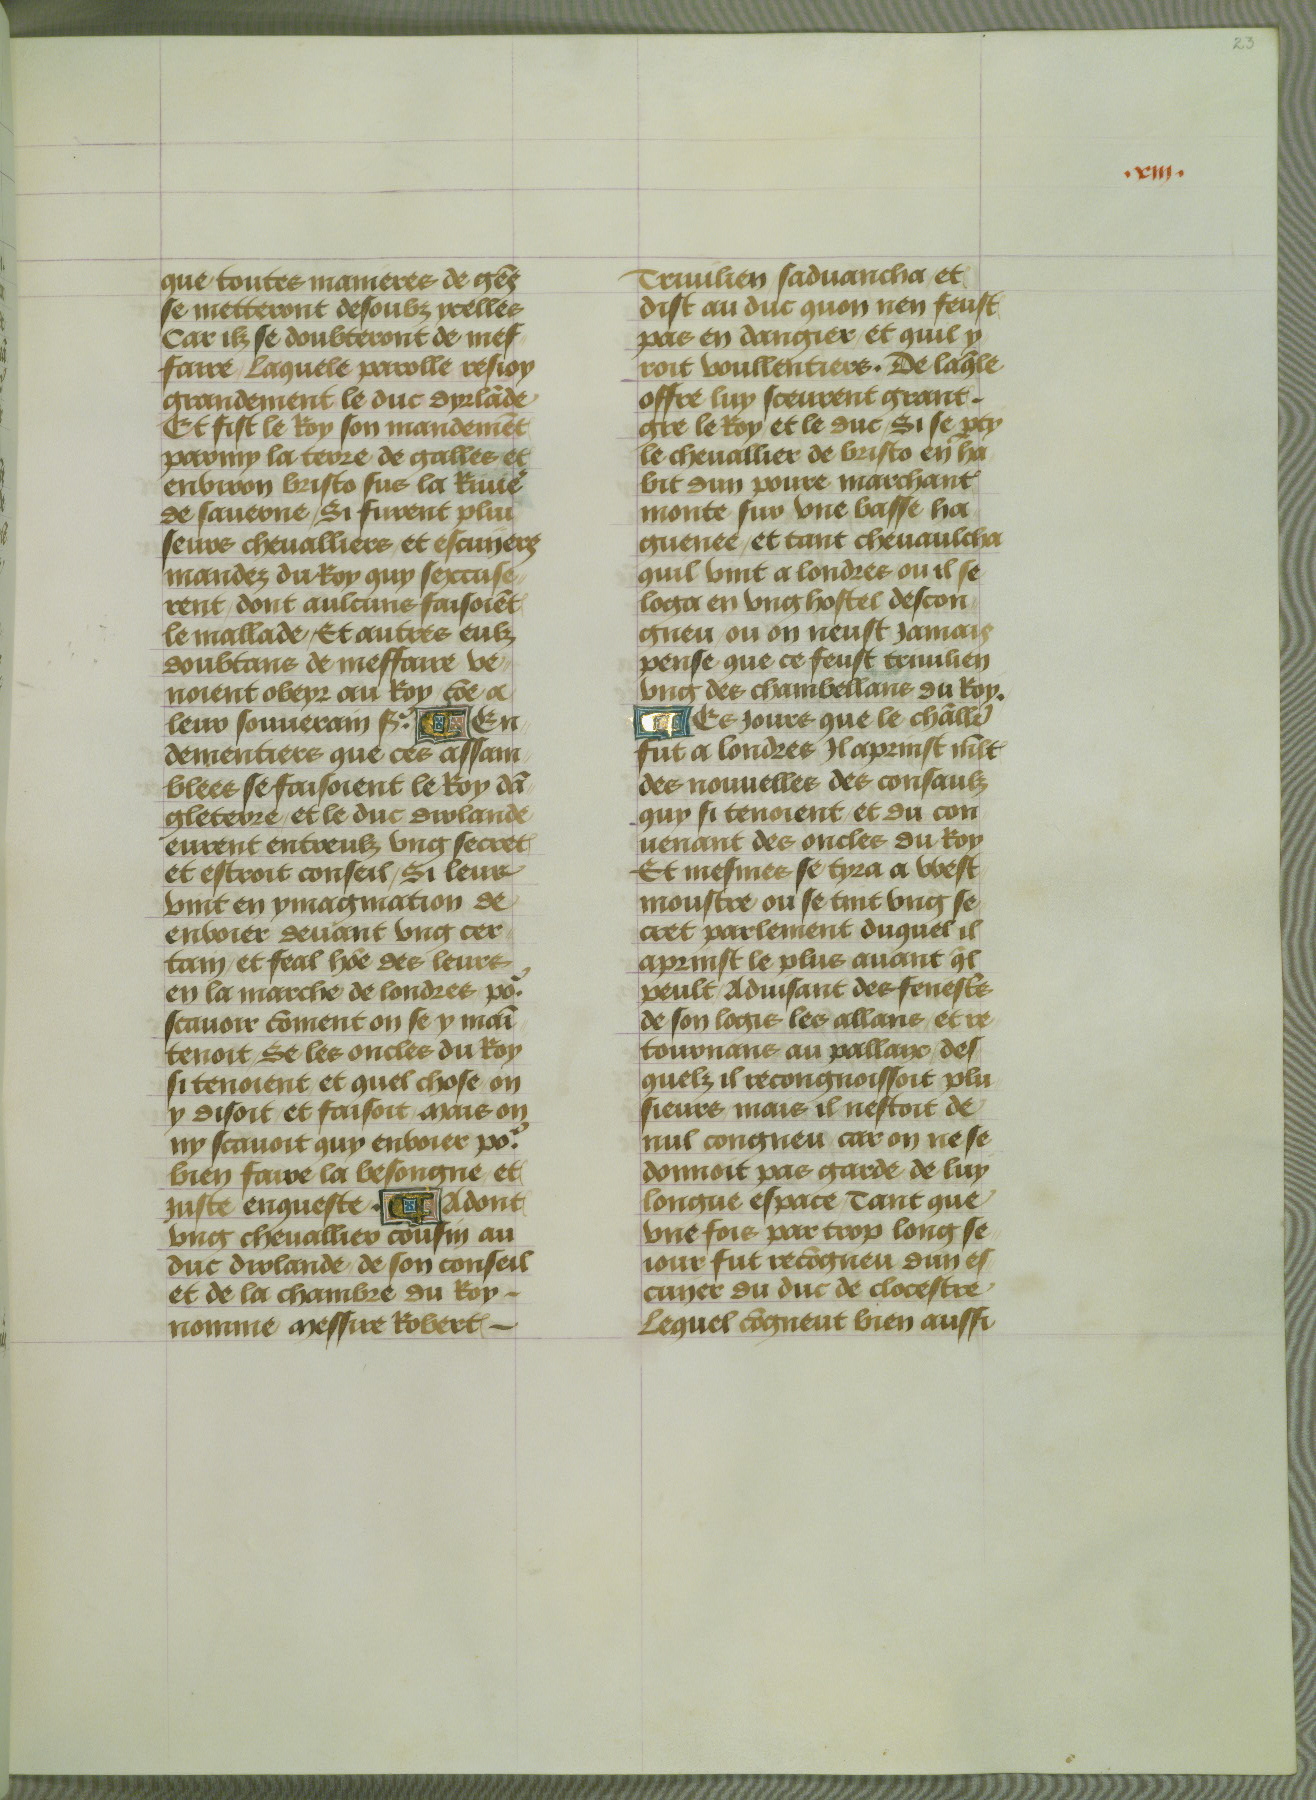 23
·xiij·
que toutes manieres de gēs
se metteront desoubz ycelles
Car ilz se doubteront de mef
faire / Laquele parolle resioy
grandement le duc dyrlāde
Et fist le Roy son mandemēt
parmy la terre de galles et
environ bristo sus la Riuie᷑
de sauerne / Si furent pluı
seurs chevalliers / et escuyers
mandez du Roy quy sexcuse
rent / dont aulcuns faisoiēt
le mallade / Et autres eulz
doubtans de meffaire ve
noient obeyr au Roy cōe a
leur souuerain sr̄. En
dementiers que ces assam
blees se faisoient le Roy dā
gleterre / et le duc dirlande
eurent entreulz vng secret
et estroit conseil / Si leur
vint en ymagination de
envoier deuant vng cer
tain / et feal hōe des leurs
en la marche de londres po᷑
scauoir cōment on se y maī
tenoit / Se les oncles du Roy
si tenoient / et quel chose on
y disoit et faisoit / Mais on
ny scauoit quy envoier po᷑
bien faire la besongne / et
juste enqueste . Adont
vng chevallier cousin au
duc dirlande / de son conseil
et de la chambre du Roy -
nomme Messire Robert -
Triuilien sadvancha / et
dist au duc quon nen feust
pas en dangier / et quil y
roit voullentiers . De laq̄le
offre luy sceurent grant -
gre le Roy / et le duc / Si se pty
le chevallier de bristo en ha
bit dun poure marchant
monte sur vne basse ha
guenee / et tant chevaulcha
quil vint a londres ou il se
loga en vng hostel descon
gneu / ou on neust jamais
pense que ce feust triuilien
vng des chambellans du Roy.
Es jours que le chl̄lr
fut a londres / Il aprinst ml̄t
des nouuelles des consaulz
quy si tenoient / et du con
uenant des oncles du Roy
Et mesmes se tyra a west
moustre ou se tint vng se
cret parlement duquel il
aprinst le plus auant ql̄
peult / Aduisant des fenest᷑s
de son logis les allans / et re
tournans au pallaix / des
quelz il recongnoissoit plu
sieurs / mais il nestoit de
nul congneu / car on ne se
donnoit pas garde de luy
longue espace / Tant que
vne fois par trop long se
iour fut recōgneu dun es
cuyer du duc de clocestre
Lequel cōgneut bien aussi